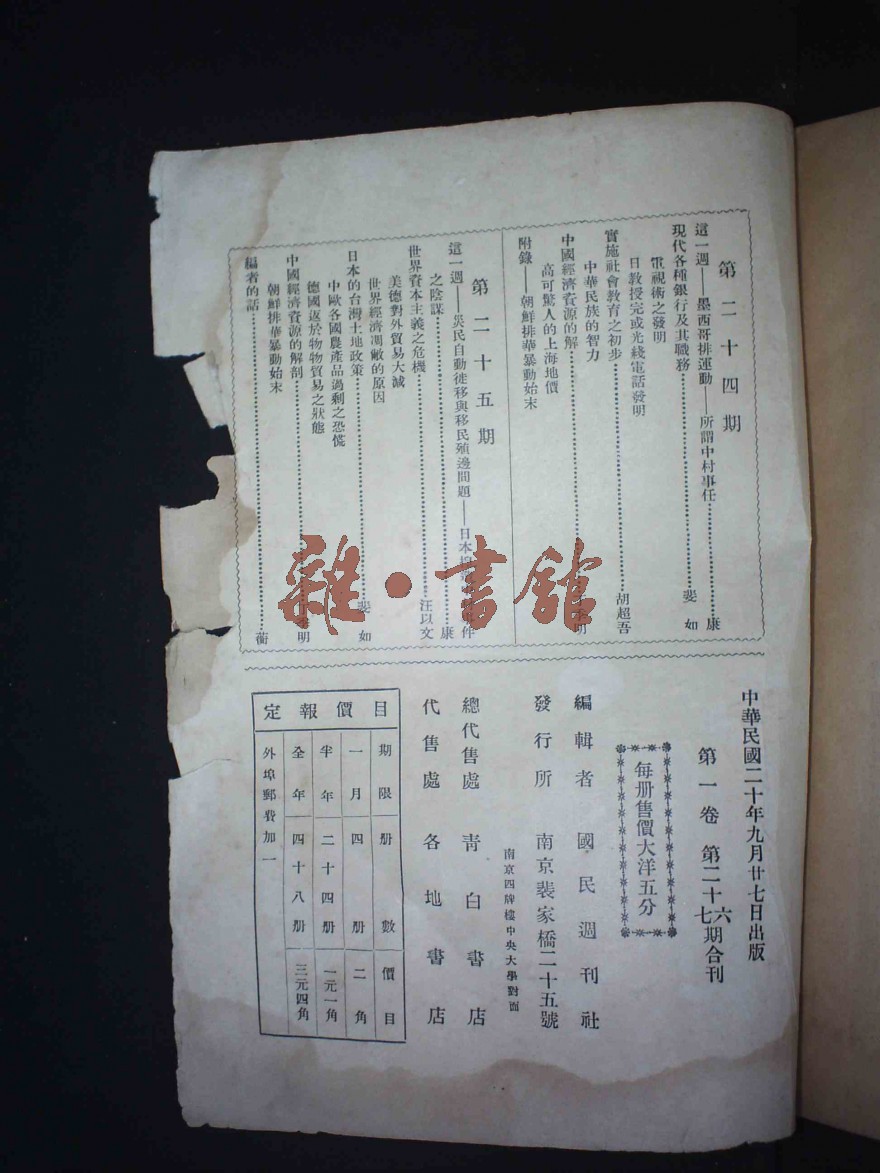 第二十四期
這一週——墨西哥排運動——所謂中村事任……康
現代各種銀行及其職務……裴如
電視術之發明
日教授完或光綫電話發明
實施社會教育之初步……胡超吾
中華民族的智力
中國經濟資源的解……明
高可驚人的上海地價
附錄——朝鮮排華暴動始末
第二十五期
這一週——災民自動徙移與移民殖邊問題——日本事件
之陰謀……康
世界資本主義之危機……汪以文
美德對外貿易大減
世界經濟凋敝的原因
日本的台灣土地政策……裴如
中歐各國農產品過剩之恐慌
德國返於物物貿易之狀態
中國經濟資源的解剖……明
朝鮮排華暴動始末
編者的話……蘅
雜·書館
中華民國二十年九月廿七日出版
第一卷 第二十六七期合刊
每册售價大洋五分
編輯者 國民週刊社
發行所 南京裴家橋二十五號
南京四牌樓中央大學對面
總代售處 青白書店
代售處 各地書店
定報價目
期限 册數 價目
一月 四册 二角
半年 二十四册 一元一角
全年 四十八册 三元四角
外埠郵費加一